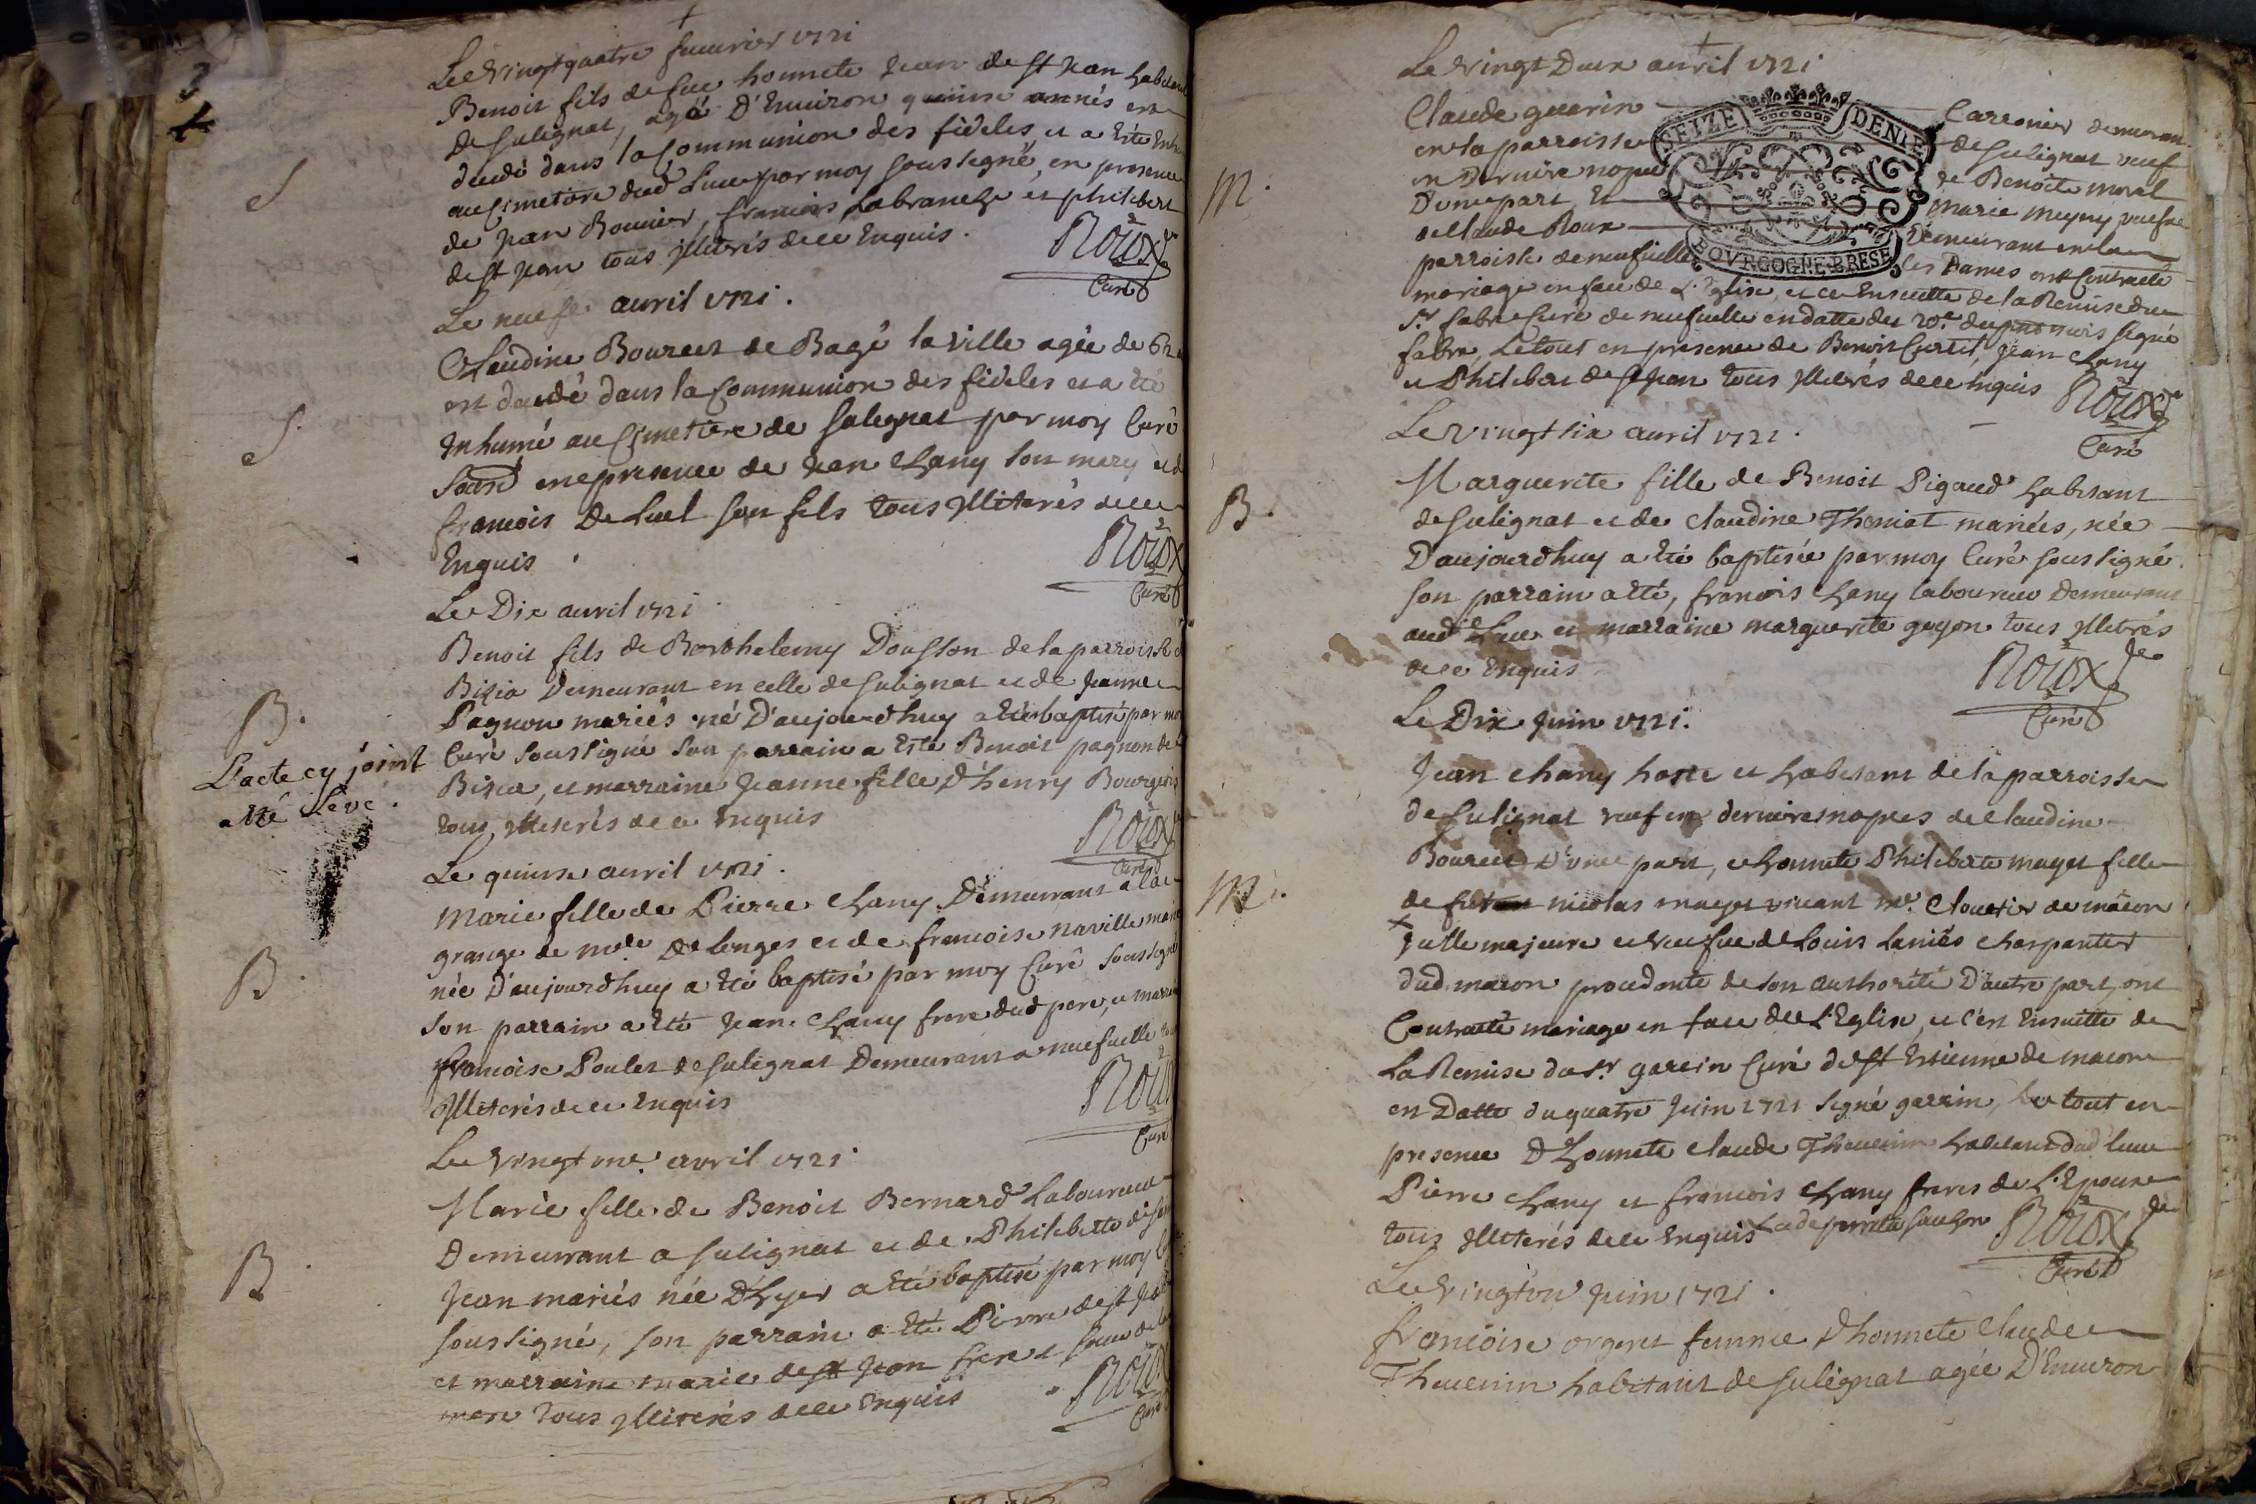 Le Vingt quatre feuurier 1721
Benoit fils de feu honnete Jean de st Jean habitant
De Sulignat, agé D'Enuiron quinse années est
decedé dans la Communion des fideles et a Eté
au Cimetiere dud Lieu par moy soussigné, en presence
de Jean Bonnier, francois Labranche et philibert
de st Jean tous jlliterés de ce Enquis.
Roux
Curé
S
Le neufe auril 1721.
Claudine Bourcet de Bagé la ville agée de 62
est decedé dans la Communion des fideles et a été
Inhumé au Cimetiere de Sulegnat par moy Curé
soussé en presence de Jean Chany son mary et d
francois De Luel son fils tous jlliterés de ce
Enquis
Roux
Curé
S.
Le Dix auril 1721
Benoit fils de Barthelemy Dousson de la parroisse d
Bizia Demeurant en celle de Sulignat et de Jeanne
Pagnon mariés né D'aujourdhuy a été baptisé par moy
Curé soussigné son parrain a Esté Benoit pagnon de
Bizia, et marraine Jeanne fille D'henry Bourgeois
tous jlliterés de ce Enquis
Roux
Curé
B.
L'acte cy joint
a été Levé.
Le quinse auril 1721.
Marie fille de Pierre Chany Demeurant a la
grange de mde De Longes et de francoise naville
née D'aujourdhuy a été baptisé par moy Curé soussigné
son parrain a été Jean Chany frere dud pere, et marraine
francoise Poulet de Sulignat Demeurant a neufuelle
jlliterés de ce Enquis
Roux
Curé
B.
Le vingt une avril 1721.
Marie fille de Benoit Bernard Laboureur
Demeurant a Sulignat et de Philiberte de st
Jean mariés née D'hyer a été baptisé par moy
soussigné, son parrain a été Pierre de st Jean
et marraine marie de st Jean frere et soeur de la
mere tous jlliterés de ce Enquis
Roux
Curé
B.
Le Vingt Deux auril 1721
SEIZE DENIE
BOVRGOGNE BRESE
Claude guerin Carronier demeurant
en la parroisse de Sulignat veuf
en Derniere nopce de Benoite morel
D'une part, Et Marie Meyny veufue
de Claude Roux Demeurant en la
perroisse de neufuille les Dames ont Contracté
mariage en face de L'Eglise, et ce Ensuitte de la Remise du
Sr fabre Curé de neufuelle en datte du 20e du pnt mois signé
fabre, Le tout en presence de Benoit Curtil, Jean Chany
et Philibert de st Jean tous jlliterés de ce Enquis
Roux
Curé
M.
Le vingt six auril 1721.
Marguerite fille de Benoit Pigaud habitant
de Sulignat et de Claudine Theniat mariés, née
D'aujourdhuy a été baptisée par moy Curé soussigné.
son parrain a été, francois Chany laboureur Demeurant
aud Lieu et marraine marguerite guyon tous jlliterés
de ce Enquis
Roux
Curé
B.
Le Dix Juin 1721.
Jean chany hoste et habitant de la parroisse
de Sulignat veuf en dernieres nopces de Claudine
Bourcet D'une part, et honnete Philiberte muget fille
de feu nicolas muget viuant me Cloutier de mâcon
fille majeure et veufue de Louis Laniés charpantier
dud. macon procedante de son authorité D'autre part, ont
Contracté mariage en face de L'Eglise, et c'est Ensuitte de
La Remise du sr garcin Curé de St Estienne de macon
en Datte du quatre Juin 1721 signé garcin, Le tout en
presence D'honnete Claude Theuenin habitant dud lieu
Pierre Chany et francois Chany freres de L'Epoux
tous jlliterés de ce Enquis
Roux
Curé
M.
Le Vingt un Juin 1721.
francoise orgeret femme d'honnete Claude
Theuenin habitant de Sulignat agée D'Enuiron